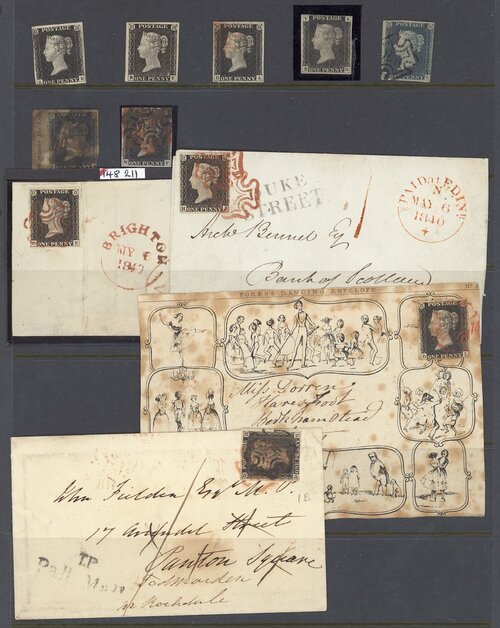 POSTAGE
ONE PENNY
POSTAGE
ONE PENNY
POSTAGE
ONE PENNY
POSTAGE
ONE PENNY
POSTAGE
POSTAGE
POSTAGE
ONE PENNY
48 211
POSTAGE
ONE PENNY
BRIGHTON
MY 6
1840
POSTAGE
ONE PENNY
DUKE
STREET.
1
PAID at EDINR
MAY 6
1840
Archd Bennet Esq
Bank of Scotland
FORES'S DANCING ENVELOPE
No
POSTAGE
ONE PENNY
Miss
Berkhampstead
POSTAGE
ONE PENNY
1B
John Fielden Esqr M.P.
17 Arundel Street
Panton Square
Todmorden
nr Rochdale
TP
Pall Mall